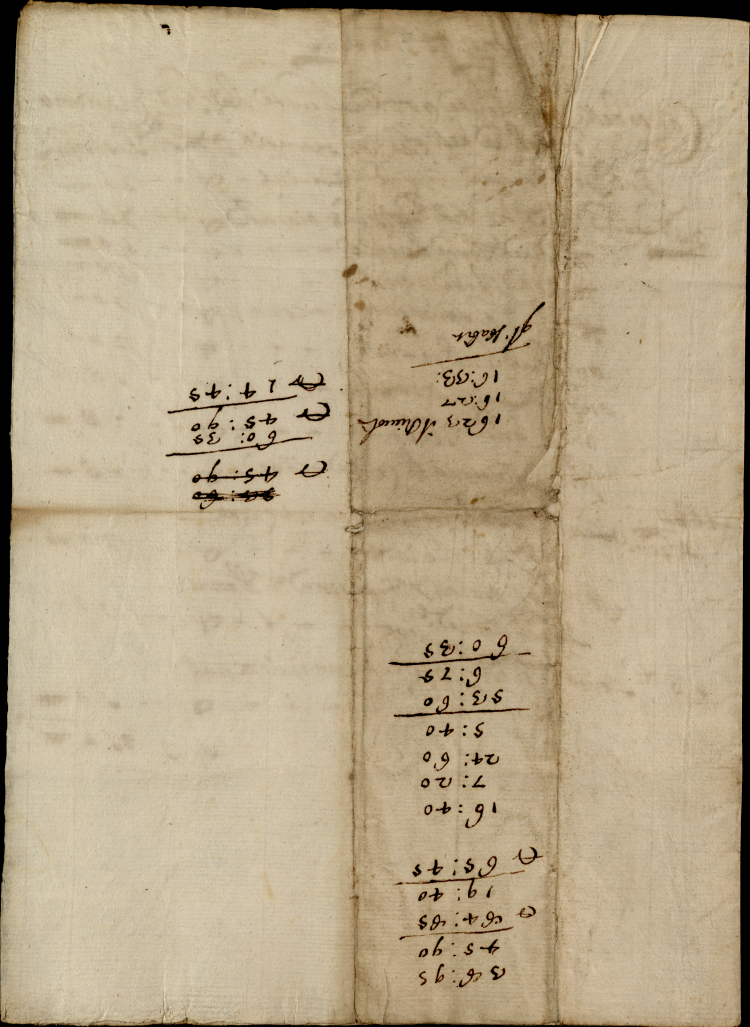 38:95
45:90
84:85
19:40
65:45
16:40
7:20
24:60
5:40
53:60
6:75
60:35
1623
16:27
16:33:
45:90
60:35
45:90
14:45